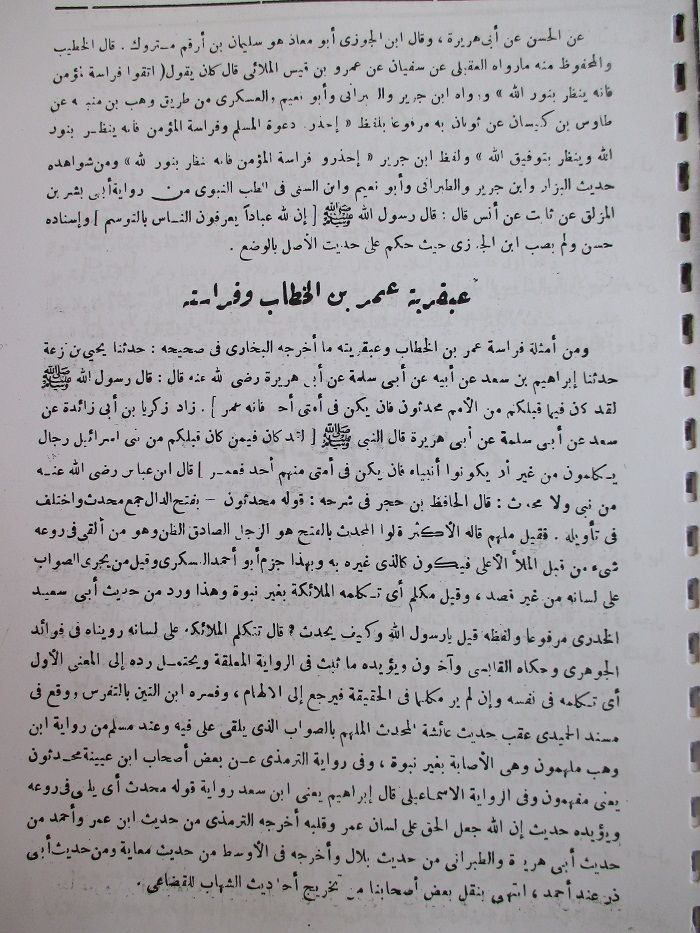 عن الحسن عن أبى هريرة ، وقال ابن الجوزى أبو معاذ هو سليمان بن أرقم متروك . قال الخطيب
والمحفوظ منه مارواه العقيلى عن سفيان عن عمرو بن قيس الملائى قال كان يقول( اتقوا فراسة المؤمن
فانه ينظر بنور الله » ورواه ابن جرير والطبرانى وأبو نعيم والعسكرى من طريق وهب بن منبه عن
طاوس بن كيسان عن ثوبان به مرفوعا بلفظ « إحذروا دعوة المسلم وفراسة المؤمن فانه ينظر بنور
الله وينظر بتوفيق الله » ولفظ ابن جرير « إحذرو فراسة المؤمن فانه ينظر بنور الله » ومن شواهده
حديث البزار وابن جرير والطبرانى وأبو نعيم وابن السنى فى الطب النبوى من رواية أبى بشر بن
المزلق عن ثابت عن أنس قال : قال رسول الله ﷺ [ إن لله عباداً يعرفون الناس بالتوسم ] وإسناده
حسن ولم يصب ابن الجوزى حيث حكم على حديث الأصل بالوضع .
عبقرية عمر بن الخطاب وفراسته
ومن أمثلة فراسة عمر بن الخطاب وعبقريته ما أخرجه البخارى فى صحيحه : حدثنا يحيى بن قزعة
حدثنا إبراهيم بن سعد عن أبيه عن أبى سلمة عن أبى هريرة رضى الله عنه قال : قال رسول الله ﷺ
لقد كان فيما قبلكم من الأمم محدثون فان يكن فى أمتى أحد فانه عمر ] . زاد زكريا بن أبى زائدة عن
سعد عن أبى سلمة عن أبى هريرة قال النبى ﷺ [ لقد كان فيمن كان قبلكم من بنى اسرائيل رجال
يكلمون من غير أن يكونوا أنبياء فان يكن فى أمتى منهم أحد فعمر ] قال ابن عباس رضى الله عنه
من نبى ولا محدث : قال الحافظ بن حجر فى شرحه : قوله محدثون – بفتح الدال جمع محدث واختلف
فى تأويله . فقيل ملهم قاله الأكثر قلوا المحدث بالفتح هو الرجل الصادق الظن وهو من ألقى فى روعه
شىء من قبل الملأ الأعلى فيكون كالذى غيره به وبهذا جزم أبو أحمد العسكرى وقيل من يجرى الصواب
على لسانه من غير قصد ، وقيل مكلم أى تكلمه الملائكة بغير نبوة وهذا ورد من حديث أبى سعيد
الخدرى مرفوعا ولفظه قيل يارسول الله وكيف يحدث ؟ قال تتكلم الملائكة على لسانه رويناه فى فوائد
الجوهرى وحكاه القابسى وآخرون ويؤيده ما ثبت فى الرواية المعلقة ويحتمل رده إلى المعنى الأول
أى تكلمه فى نفسه وإن لم ير مكلما فى الحقيقة فيرجع إلى الالهام ، وفسره ابن التين بالتفرس ووقع فى
مسند الحميدى عقب حديث عائشة المحدث الملهم بالصواب الذى يلقى على فيه وعند مسلم من رواية ابن
وهب ملهمون وهى الأصابة بغير نبوة ، وفى رواية الترمذى عن بعض أصحاب ابن عيينة محدثون
يعنى مفهمون وفى الرواية الاسماعيلى قال إبراهيم يعنى ابن سعد رواية قوله محدث أى يلقى فى روعه
ويؤيده حديث إن الله جعل الحق على لسان عمر وقلبه أخرجه الترمذى من حديث ابن عمر وأحمد من
حديث أبى هريرة والطبرانى من حديث بلال وأخرجه فى الأوسط من حديث معاية ومن حديث أبى
ذر عند أحمد ، انتهى بنقل بعض أصحابنا من تخريج أحاديث الشهاب للقضاعى .